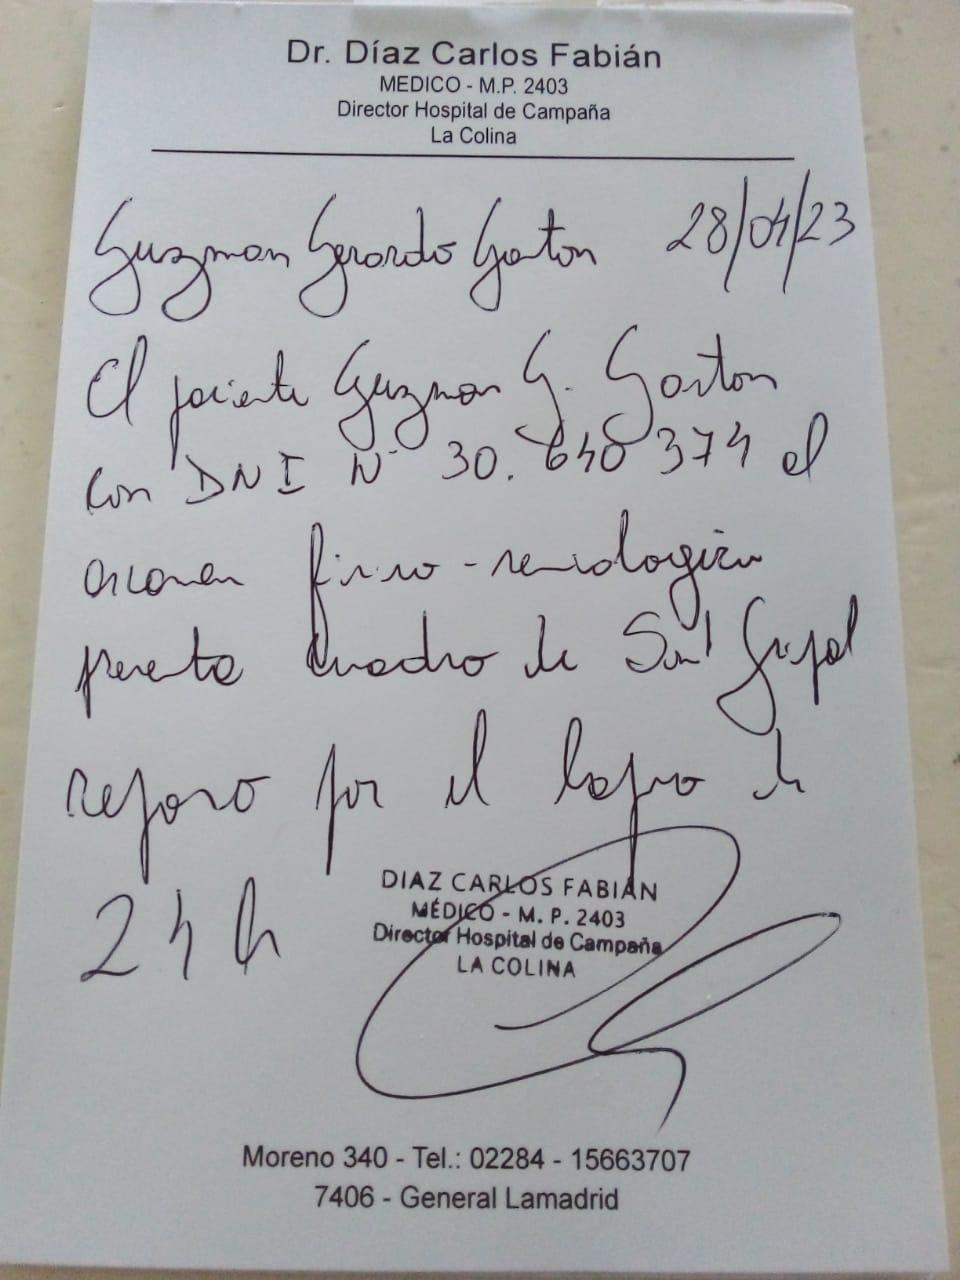 Dr. Díaz Carlos Fabián
MEDICO - M.P. 2403
Director Hospital de Campaña
La Colina
Guzman Gerardo Gaston 28/04/23
El paciente Guzman G. Gaston
con DNI N° 30.640374 al
examen fisico-semiologico
presenta cuadro de Sind Gripal
reposo por el lapso de
24 h
DIAZ CARLOS FABIÁN
MÉDICO - M. P. 2403
Director Hospital de Campaña
LA COLINA
Moreno 340 - Tel.: 02284 - 15663707
7406 - General Lamadrid